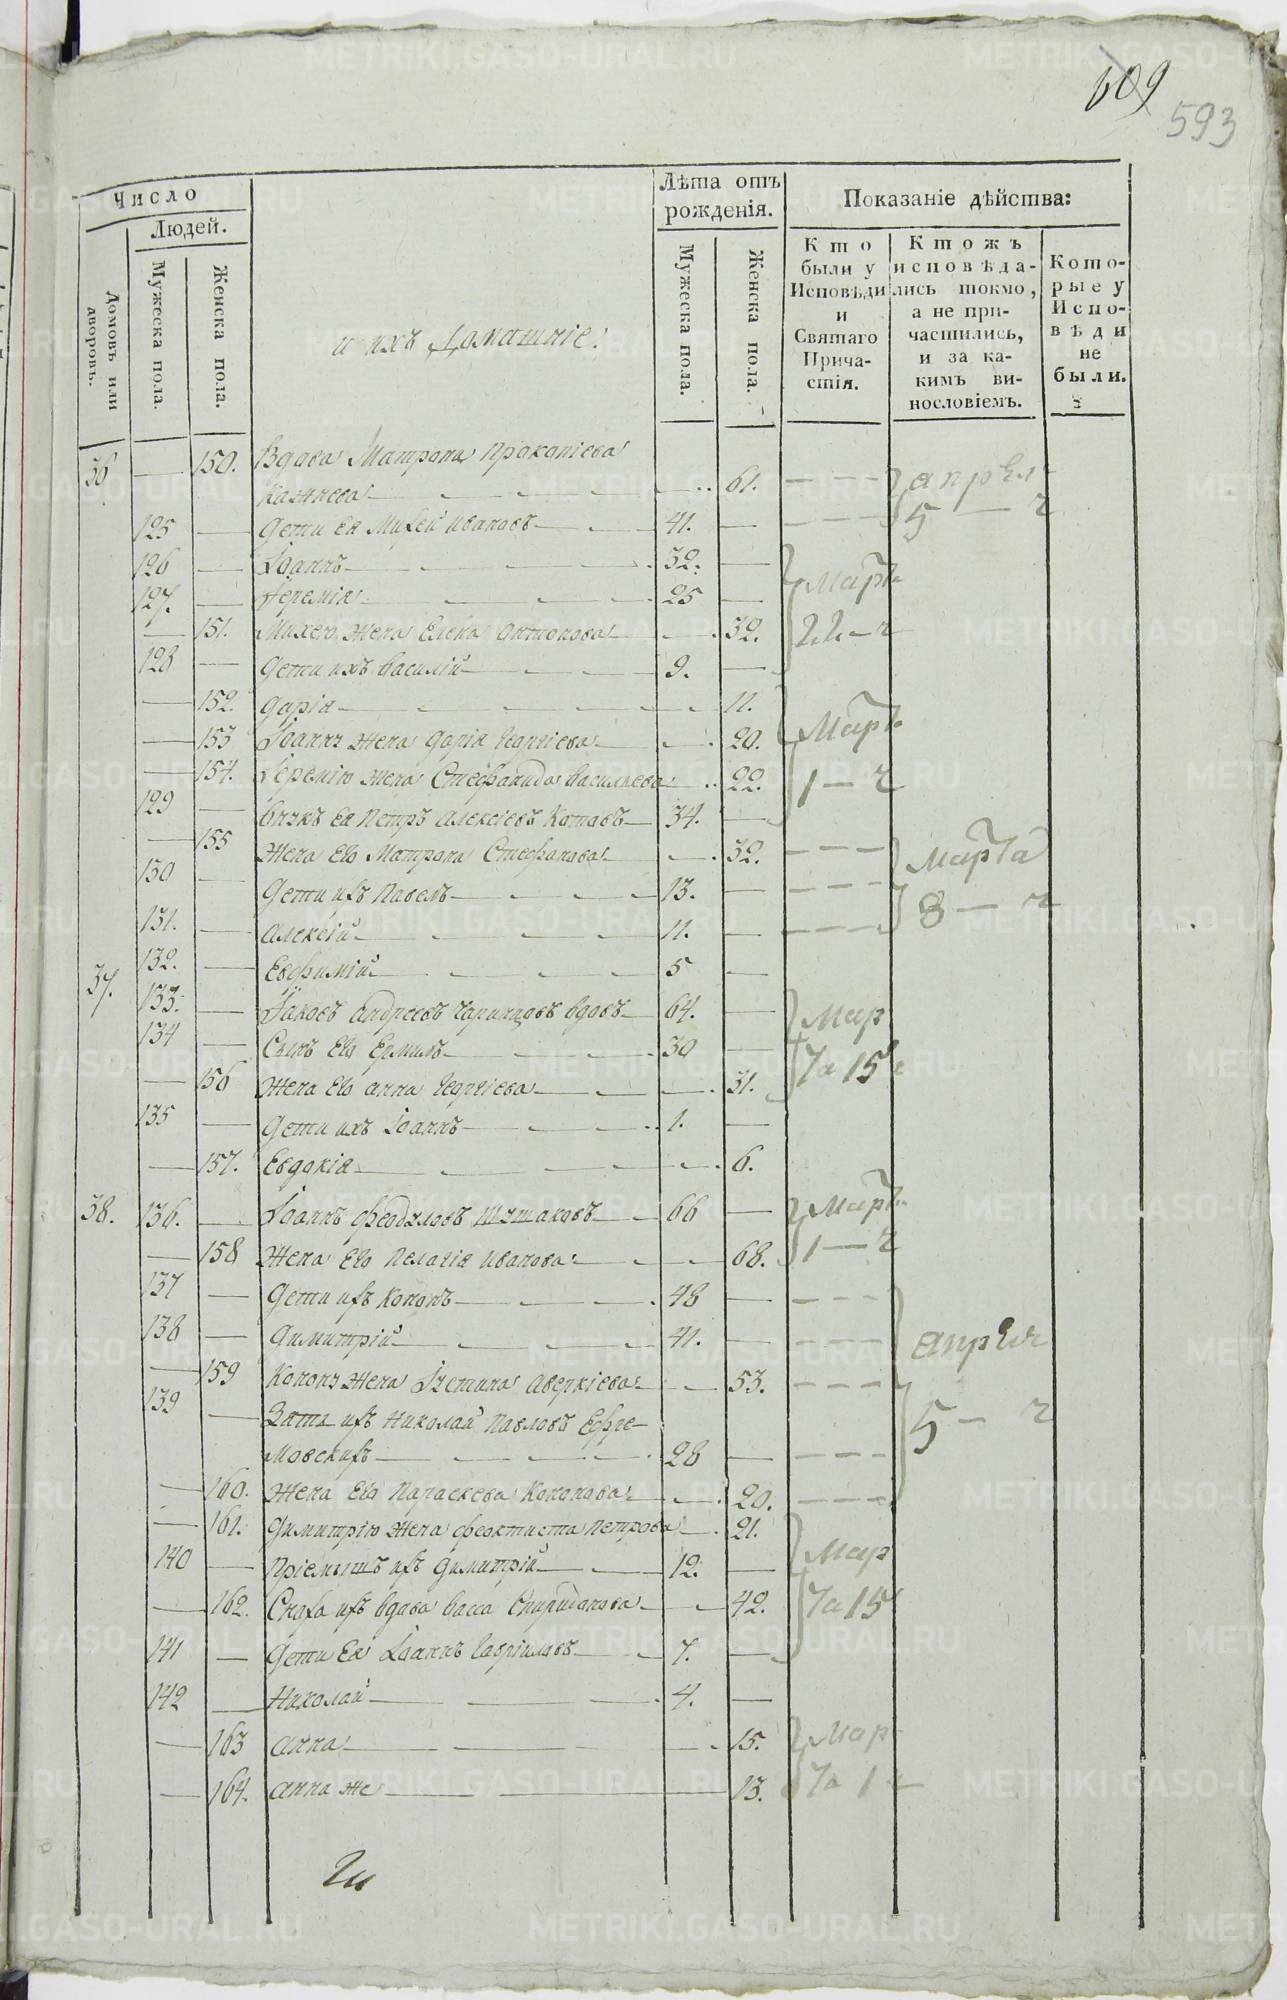 609
593
Число
Людей.
Домовъ или дворовъ.
Мужеска пола.
Женска пола.
и ихъ Домашніе:
Лѣта отъ рожденія.
Мужеска пола.
Женска пола.
Показаніе дѣйства:
Кто были у Исповѣди и Святаго Причастія.
Ктожъ исповѣдались токмо, а не причастились, и за какимъ винословіемъ.
Которые у Исповѣди не были.
36 — 150. Вдова Матрона Прокопіева
61. апрѣля
125 — Дети Ея Михей Ивановъ — 41. — 5 — ч
126 — Іоаннъ — 32. —
127. — Іеремія — 25 — Март
— 151. Михею жена Елена Антонова — 32. 22 — ч
128 — Дети ихъ Василій — 9. —
— 152. Дарія — 11.
— 153 Іоанну жена Дарія Георгіева — 20. Март
— 154. Іеремію жена Стефанида Васильева — 22. 1 — ч
129 — Внукъ Ея Петръ Алексіевъ Котовъ — 34. —
— 155 Жена Его Матрона Стефанова — 32. Марта
130 — Дети ихъ Павелъ — 13. —
131. — Алексій — 11. — 8 — ч
132. — Евфимій — 5 —
37. 133. — Іаковъ Андреевъ вдовъ — 64. — Мар
134 — Сынъ Его Ермилъ — 30 —
— 156 Жена Его Анна Георгіева — 31. та 15 ч
135 — Дети ихъ Іоаннъ — 1. —
— 157. Евдокія — 6.
38. 136. — Іоаннъ Феодуловъ Шушаковъ — 66 — Март
— 158 Жена Его Пелагія Иванова — 68. 1 — ч
137 — Дети ихъ Кононъ — 48 —
138 — Димитрій — 41. — апрѣля
— 159 Конону жена Іустина Аверкіева — 53.
139 — Зять ихъ Николай Павловъ Ефре-
мовскихъ — 28 — 5 — ч
— 160. Жена Его Параскева Кононова — 20.
— 161. Димитрію жена Феоктиста Петрова — 21.
140 — Пріемышъ ихъ Димитрій — 12. — Мар
— 162. Сноха ихъ вдова Васса Спиридонова — 42. та 15
141 — Дети Ея Іоаннъ Гавріиловъ — 7. —
142 — Николай — 4. —
— 163 Анна — 15. Мар
— 164. Анна же — 13. та 1 ч
METRIKI.GASO-URAL.RU